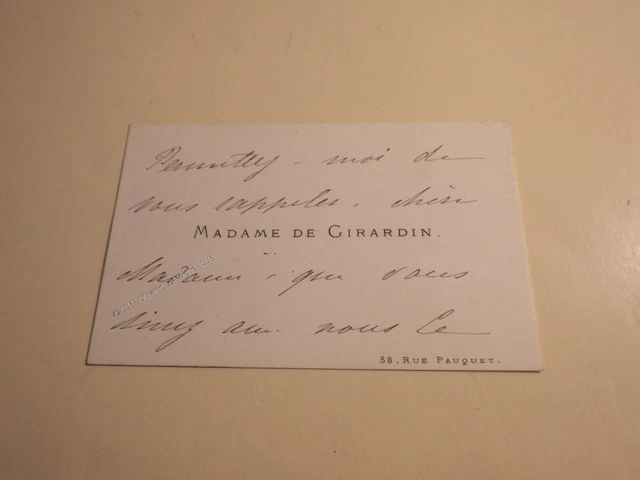 Permettez-moi de
vous rappeler, chère
MADAME DE GIRARDIN.
Madame, que vous
dinez avec nous le
38, RUE PAUQUET.